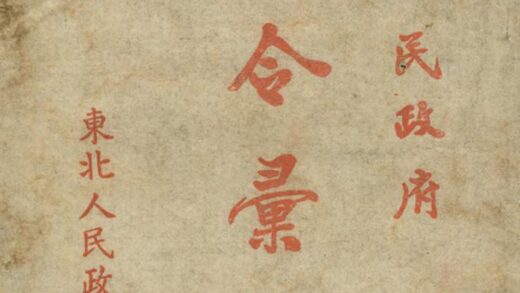 民政府
令彙
東北人民政